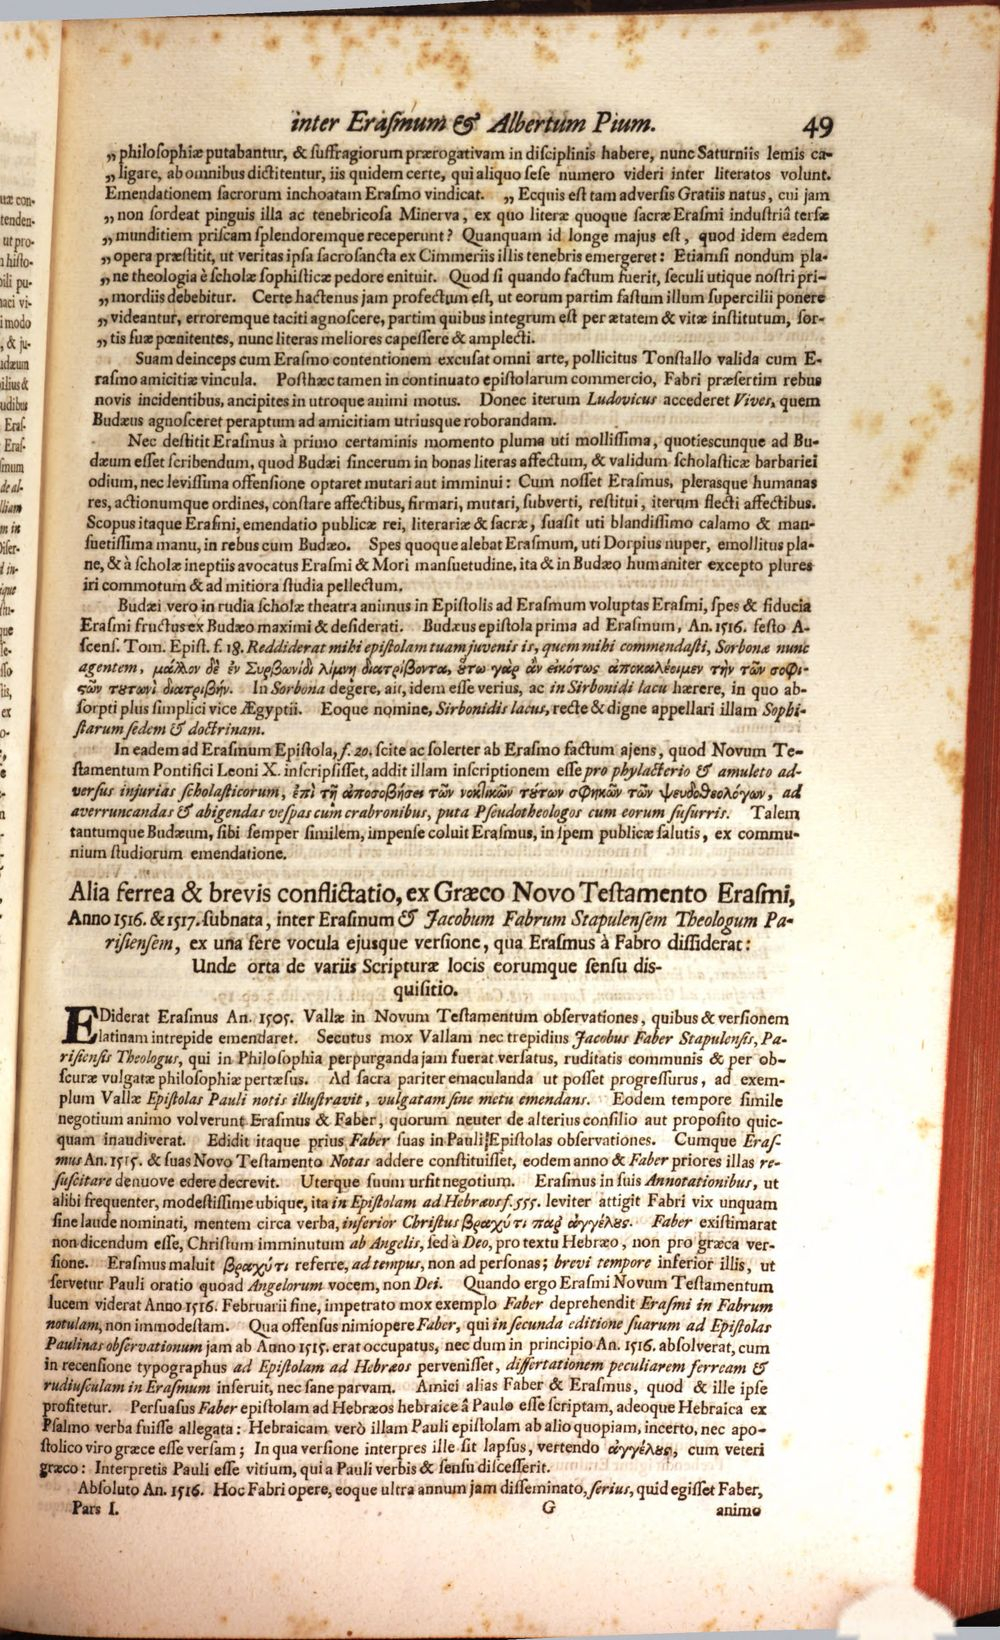 inter Erasmum & Albertum Pium. 49
„ philosophiæ putabantur, & suffragiorum prærogativam in disciplinis habere, nunc Saturniis lemis ca-
„ ligare, ab omnibus dictitentur, iis quidem certe, qui aliquo sese numero videri inter literatos volunt.
Emendationem sacrorum inchoatam Erasmo vindicat. „ Ecquis est tam adversis Gratiis natus, cui jam
„ non sordeat pinguis illa ac tenebricosa Minerva, ex quo literæ quoque sacræ Erasmi industriâ tersæ
„ munditiem priscam splendoremque receperunt? Quanquam id longe majus est, quod idem eadem
„ opera præstitit, ut veritas ipsa sacrosancta ex Cimmeriis illis tenebris emergeret: Etiamsi nondum pla-
„ ne theologia è scholæ sophisticæ pedore enituit. Quod si quando factum fuerit, seculi utique nostri pri-
„ mordiis debebitur. Certe hactenus jam profectum est, ut eorum partim fastum illum supercilii ponere
„ videantur, erroremque taciti agnoscere, partim quibus integrum est per ætatem & vitæ institutum, sor-
„ tis suæ pœnitentes, nunc literas meliores capessere & amplecti.
Suam deinceps cum Erasmo contentionem excusat omni arte, pollicitus Tonstallo valida cum E-
rasmo amicitiæ vincula. Posthæc tamen in continuato epistolarum commercio, Fabri præsertim rebus
novis incidentibus, ancipites in utroque animi motus. Donec iterum Ludovicus accederet Vives, quem
Budæus agnosceret peraptum ad amicitiam utriusque roborandam.
Nec destitit Erasmus à primo certaminis momento pluma uti mollissima, quotiescunque ad Bu-
dæum esset scribendum, quod Budæi sincerum in bonas literas affectum, & validum scholasticæ barbariei
odium, nec levissima offensione optaret mutari aut imminui: Cum nosset Erasmus, plerasque humanas
res, actionumque ordines, constare affectibus, firmari, mutari, subverti, restitui, iterum flecti affectibus.
Scopus itaque Erasmi, emendatio publicæ rei, literariæ & sacræ, suasit uti blandissimo calamo & man-
suetissima manu, in rebus cum Budæo. Spes quoque alebat Erasmum, uti Dorpius nuper, emollitus pla-
ne, & à scholæ ineptiis avocatus Erasmi & Mori mansuetudine, ita & in Budæo humaniter excepto plures
iri commotum & ad mitiora studia pellectum.
Budæi vero in rudia scholæ theatra animus in Epistolis ad Erasmum voluptas Erasmi, spes & fiducia
Erasmi fructus ex Budæo maximi & desiderati. Budæus epistola prima ad Erasmum, An. 1516. festo A-
scens. Tom. Epist. f. 18. Reddiderat mihi epistolam tuam juvenis is, quem mihi commendasti, Sorbonæ nunc
agentem, μᾶλλον δὲ ἐν Συρβωνίδι λίμνῃ διατρίβοντα, ὅτω γὰρ ἂν εἰκότως ἀποκαλέοιμεν τὴν τῶν σοφι-
ςῶν τȣτωνὶ διατριβήν. In Sorbona degere, ait, idem esse verius, ac in Sirbonidi lacu hærere, in quo ab-
sorpti plus simplici vice Ægyptii. Eoque nomine, Sirbonidis lacus, recte & digne appellari illam Sophi-
starum sedem & doctrinam.
In eadem ad Erasmum Epistola, f. 20. scite ac solerter ab Erasmo factum ajens, quod Novum Te-
stamentum Pontifici Leoni X. inscripsisset, addit illam inscriptionem esse pro phylacterio & amuleto ad-
versus injurias scholasticorum, ἐπὶ τῇ ἀποσοβήσει τῶν τȣτων σφηκῶν τῶν ψευδοθεολόγων, ad
averruncandas & abigendas vespas cum crabronibus, puta Pseudotheologos cum eorum susurris. Talem
tantumque Budæum, sibi semper similem, impense coluit Erasmus, in spem publicæ salutis, ex commu-
nium studiorum emendatione.
Alia ferrea & brevis conflictatio, ex Græco Novo Testamento Erasmi,
Anno 1516. & 1517. subnata, inter Erasmum & Jacobum Fabrum Stapulensem Theologum Pa-
risiensem, ex una fere vocula ejusque versione, qua Erasmus à Fabro dissiderat:
Unde orta de variis Scripturæ locis eorumque sensu dis-
quisitio.
EDiderat Erasmus An. 1505. Vallæ in Novum Testamentum observationes, quibus & versionem
latinam intrepide emendaret. Secutus mox Vallam nec trepidius Jacobus Faber Stapulensis, Pa-
risiensis Theologus, qui in Philosophia perpurganda jam fuerat versatus, ruditatis communis & per ob-
scuræ vulgatæ philosophiæ pertæsus. Ad sacra pariter emaculanda ut posset progressurus, ad exem-
plum Vallæ Epistolas Pauli notis illustravit, vulgatam sine metu emendans. Eodem tempore simile
negotium animo volverunt Erasmus & Faber, quorum neuter de alterius consilio aut proposito quic-
quam inaudiverat. Edidit itaque prius Faber suas in Pauli Epistolas observationes. Cumque Eras-
mus An. 1515. & suas Novo Testamento Notas addere constituisset, eodem anno & Faber priores illas re-
suscitare denuo edere decrevit. Uterque suum ursit negotium. Erasmus in suis Annotationibus, ut
alibi frequenter, modestissime ubique, ita in Epistolam ad Hebræos f. 555. leviter attigit Fabri vix unquam
sine laude nominati, mentem circa verba, inferior Christus βραχύ τι παρ' ἀγγέλȣς. Faber existimarat
non dicendum esse, Christum imminutum ab Angelis, sed à Deo, pro textu Hebræo, non pro græca ver-
sione. Erasmus maluit βραχύ τι referre, ad tempus, non ad personas; brevi tempore inferior illis, ut
servetur Pauli oratio quoad Angelorum vocem, non Dei. Quando ergo Erasmi Novum Testamentum
lucem viderat Anno 1516. Februarii fine, impetrato mox exemplo Faber deprehendit Erasmi in Fabrum
notulam, non immodestam. Qua offensus nimiopere Faber, qui in secunda editione suarum ad Epistolas
Paulinas observationum jam ab Anno 1515. erat occupatus, nec dum in principio An. 1516. absolverat, cum
in recensione typographus ad Epistolam ad Hebræos pervenisset, dissertationem peculiarem ferream &
rudiusculam in Erasmum inseruit, nec sane parvam. Amici alias Faber & Erasmus, quod & ille ipse
profitetur. Persuasus Faber epistolam ad Hebræos hebraice â Paulo esse scriptam, adeoque Hebraica ex
Psalmo verba fuisse allegata: Hebraicam verò illam Pauli epistolam ab alio quopiam, incerto, nec apo-
stolico viro græce esse versam; In qua versione interpres ille sit lapsus, vertendo ἀγγέλȣς, cum veteri
græco: Interpretis Pauli esse vitium, qui a Pauli verbis & sensu discesserit.
Absoluto An. 1516. Hoc Fabri opere, eoque ultra annum jam disseminato, serius, quid egisset Faber,
Pars I. G animo